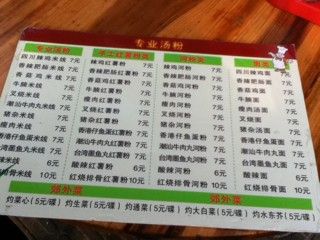 专业汤粉
专业汤粉
手工红薯粉类
河粉类
面类
四川辣鸡米线 7元
香辣肥肠米线 7元
香菇鸡米线 7元
牛腩米线 7元
瘦肉米线 7元
叉烧米线 7元
猪杂米线 7元
香港仔鱼蛋米线 7元
潮汕牛肉丸米线 7元
台湾墨鱼丸米线 7元
酸辣米线 6元
红烧排骨米线 10元
辣鸡红薯粉 7元
香辣肥肠红薯粉 7元
香菇鸡红薯粉 7元
牛腩红薯粉 7元
瘦肉红薯粉 7元
叉烧红薯粉 7元
猪杂红薯粉 7元
香港仔鱼蛋红薯粉 7元
潮汕牛肉丸红薯粉 7元
台湾墨鱼丸红薯粉 7元
酸辣红薯粉 6元
红烧排骨红薯粉 10元
辣鸡河粉 7元
香辣肥肠河粉 7元
香菇鸡河粉 7元
牛腩河粉 7元
瘦肉河粉 7元
叉烧河粉 7元
猪杂河粉 7元
香港仔鱼蛋河粉 7元
潮汕牛肉丸河粉 7元
台湾墨鱼丸河粉 7元
酸辣河粉
红烧排骨河粉 10元
四川辣鸡面 7元
香辣肥肠面 7元
香菇鸡面 7元
牛腩面 7元
叉烧面 7元
猪杂汤面 7元
香港仔鱼蛋面 7元
潮汕牛肉丸面 7元
台湾墨鱼丸面 7元
酸辣面 6元
红烧排骨面 10元
郊外菜
郊外菜
灼菜心（5元/碟） 灼生菜（5元/碟） 灼通菜（5元/碟） 灼大白菜（5元/碟） 灼水东芥（5元/碟）